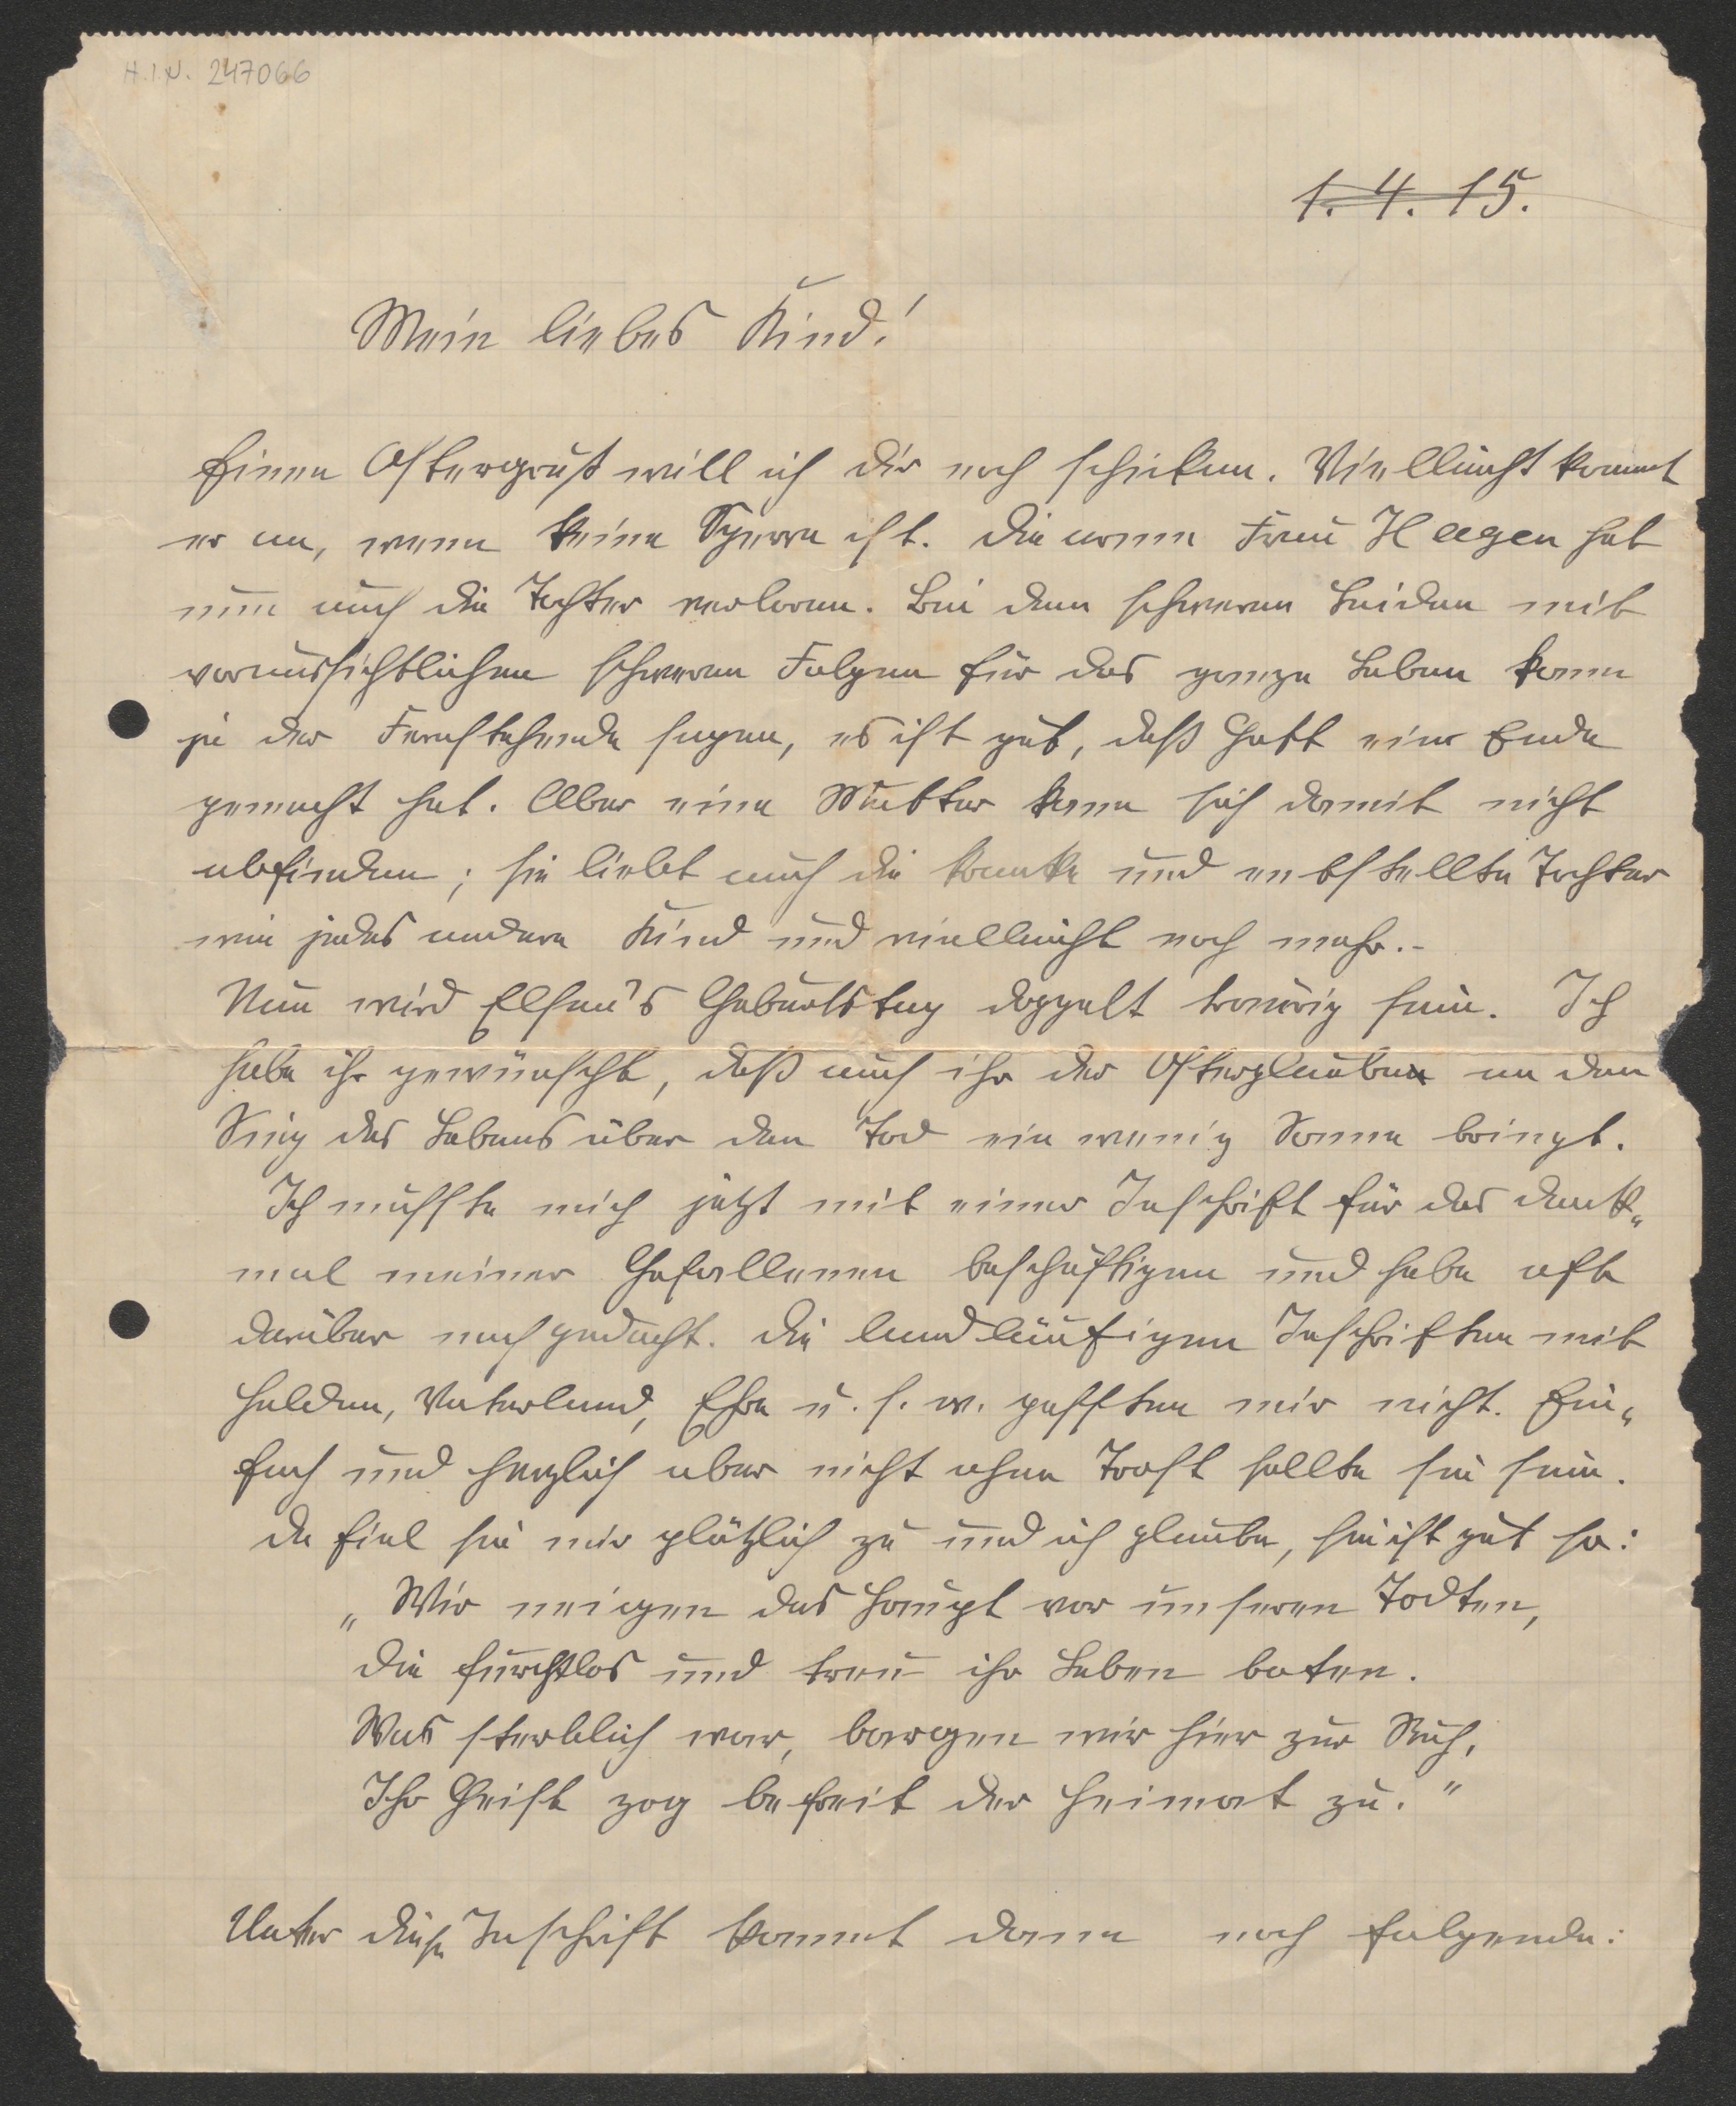 H.I.N. 247066
1. 4. 15.
Mein liebes Kind!
Einen Ostergruß will ich dir noch schicken. Vielleicht kommt
er an, wenn keine Sperre ist. Die arme Frau Hagen hat
nun auch die Tochter verloren. Bei dem schweren Leiden mit
voraussichtlichen schweren Folgen für das ganze Leben kann
ja der Fernstehende sagen, es ist gut, daß Gott ein Ende
gemacht hat. Aber eine Mutter kann sich damit nicht
abfinden; sie liebt auch die kranke und entstellte Tochter
wie jedes andere Kind und vielleicht noch mehr.-
Nun wird Elsen's Geburtstag doppelt traurig sein. Ich
habe ihr gewünscht, daß auch ihr der Osterglaube an den
Sieg des Lebens über den Tod ein wenig Sonne bringt.
Ich mußte mich jetzt mit einer Inschrift für das Denk„
mal meiner Gefallenen beschäftigen und habe oft
darüber nachgedacht. Die landläufigen Inschriften mit
Helden, Vaterland, Ehre u. s. w. paßten mir nicht. Ein„
fach und herzlich aber nicht ohne Trost sollte sie sein.
Da fiel sie mir plötzlich zu und ich glaube, sie ist gut so:
„Wir neigen das Haupt vor unseren Todten,
Die furchtlos und treu ihr Leben boten.
Was sterblich war, bargen wir hier zur Ruh,
Ihr Geist zog befreit der Heimat zu."
Unter diese Inschrift kommt dann noch folgende: